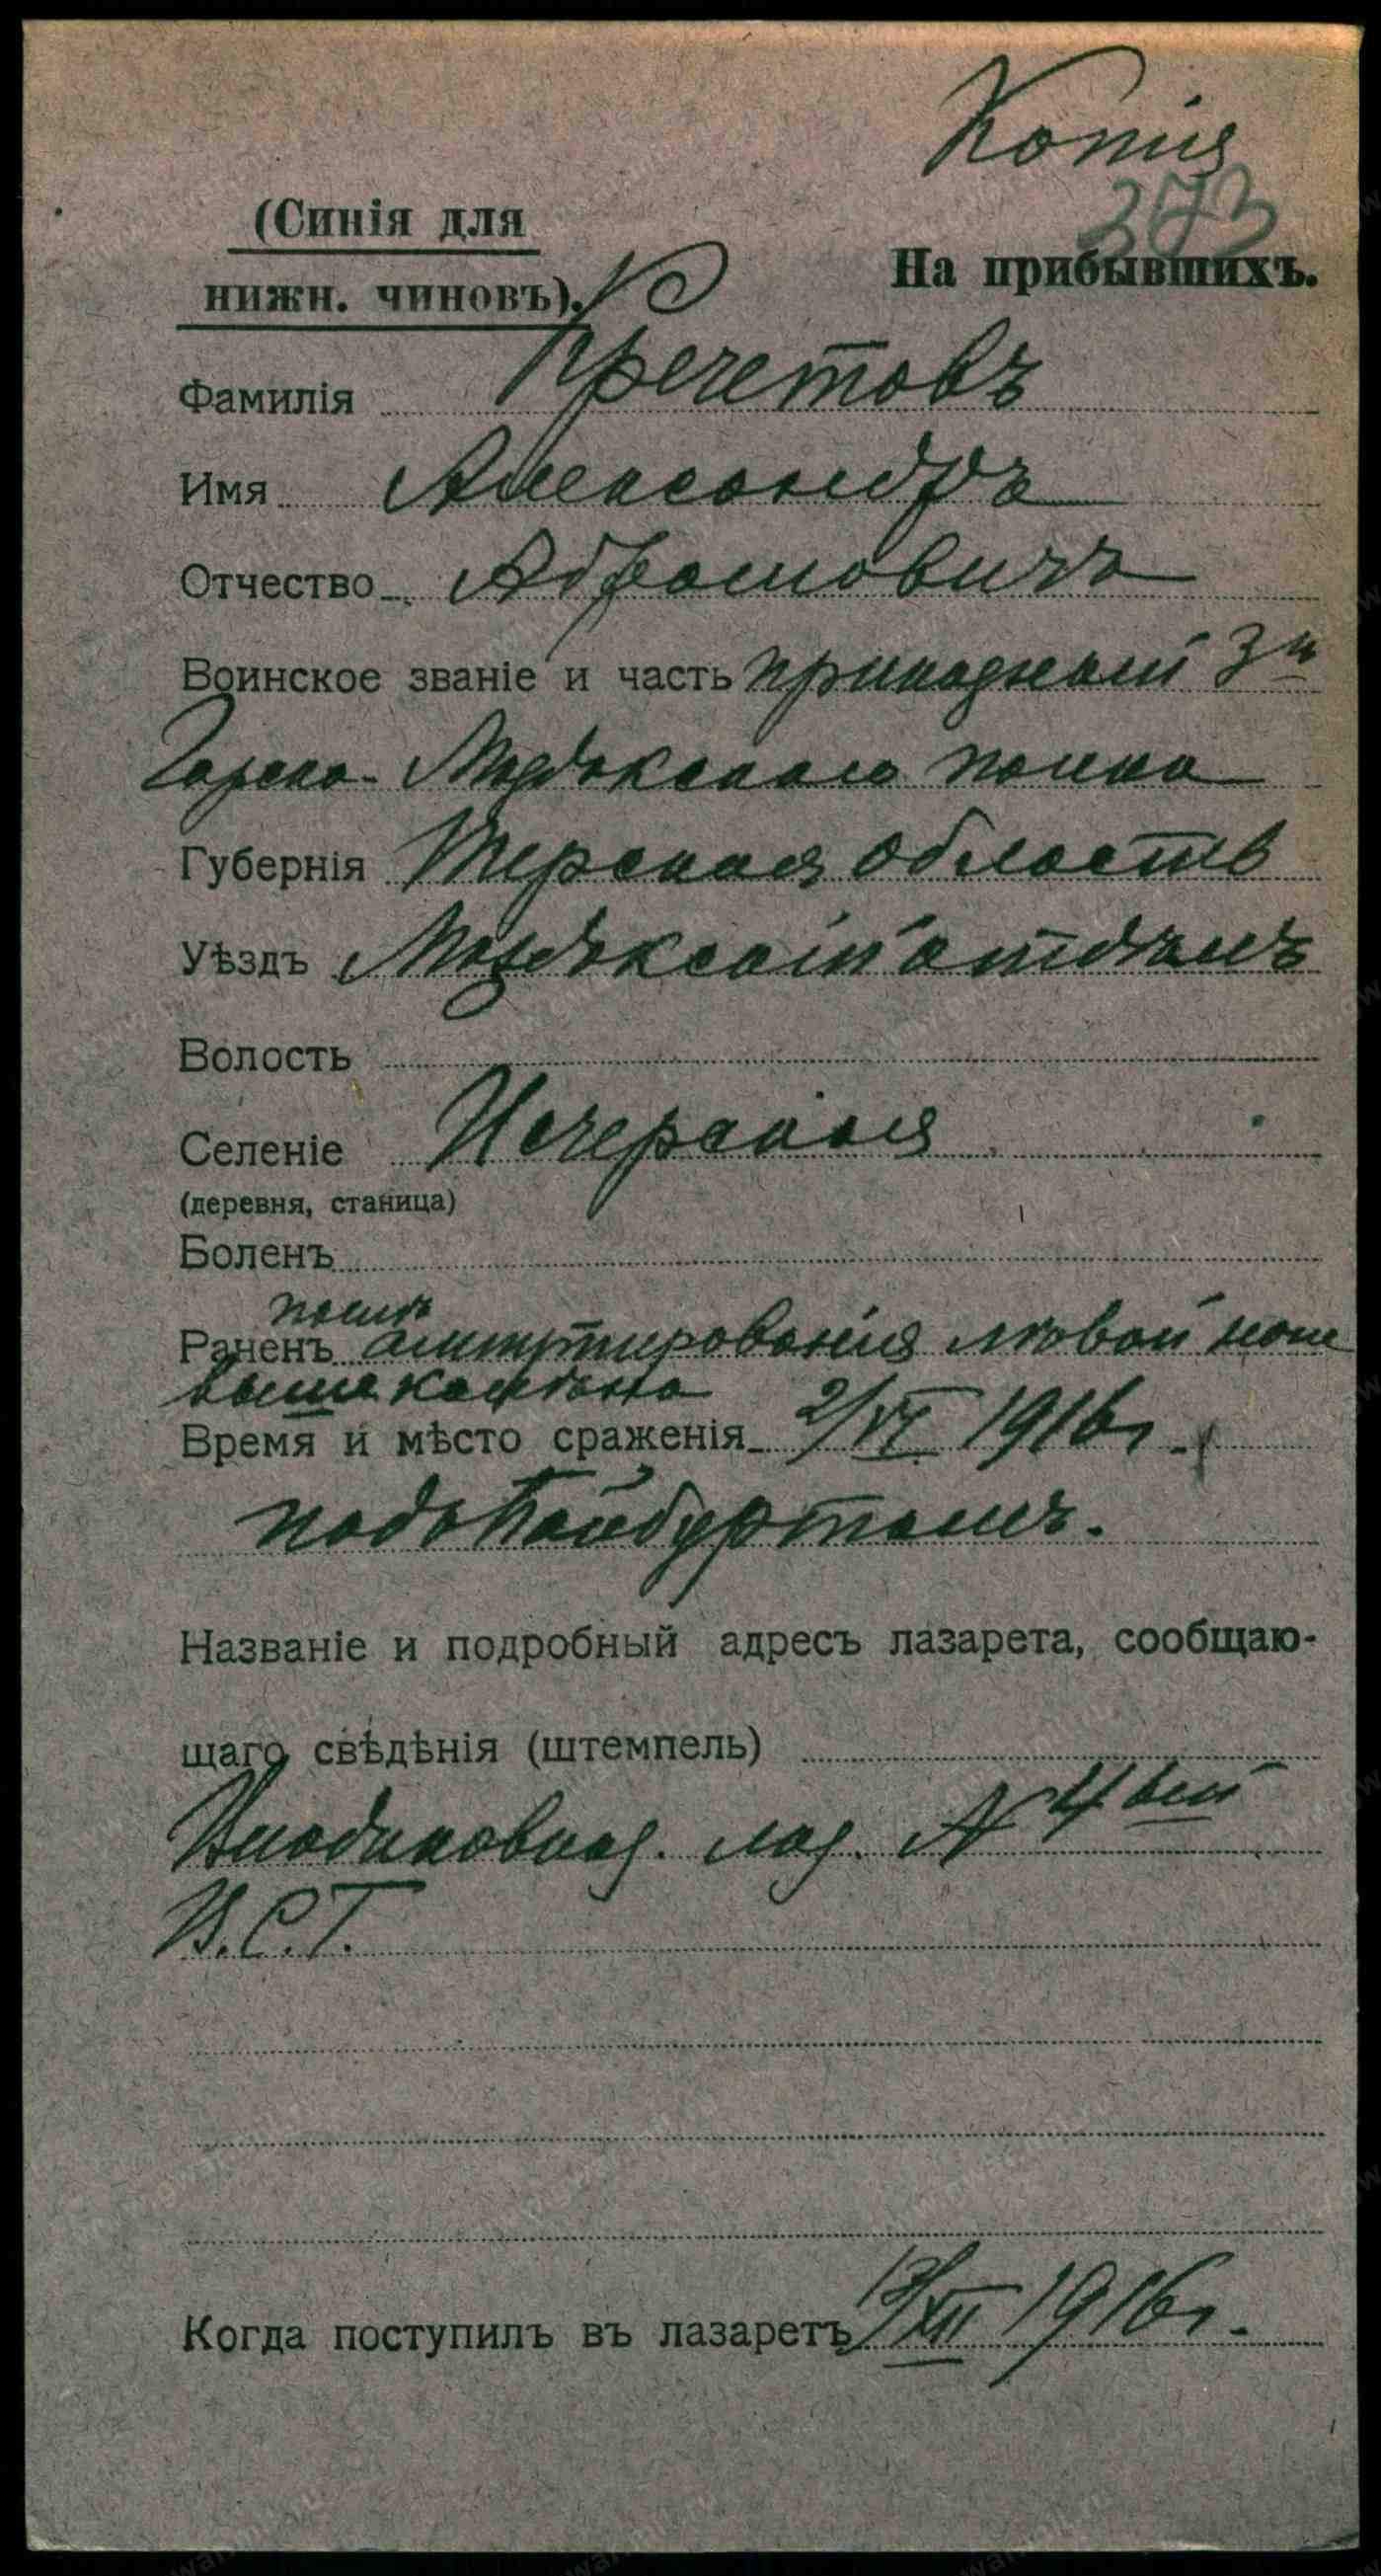 Копія
273
(Синія для
нижн. чиновъ).
На прибывшихъ.
Фамилія Кречетовъ
Имя Александръ
Отчество Абрамовичъ
Воинское званіе и часть приказный 3й
Горско-Моздокскаго полка
Губернія Терская область
Уѣздъ Моздокскій отдѣлъ
Волость
Селеніе Ищерская
(деревня, станица)
Боленъ
послѣ
Раненъ ампутированія лѣвой ноги
выше колѣна
Время и мѣсто сраженія 2/VI 1916 г.
подъ Байбуртомъ.
Названіе и подробный адресъ лазарета, сообщаю-
щаго свѣдѣнія (штемпель)
Владикавказ. лаз. № 4ый
В.С.Г.
Когда поступилъ въ лазаретъ 13/XII 1916 г.